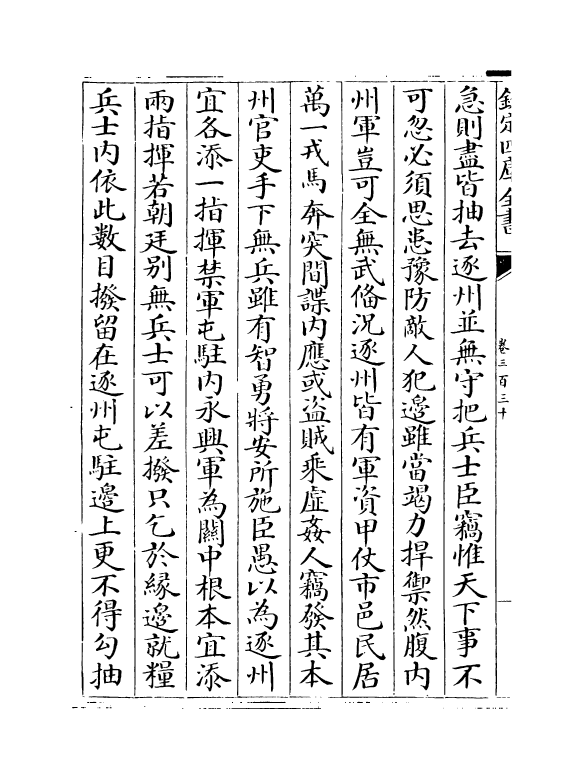 欽定四庫全書
卷三百三十
急則盡皆抽去逐州並無守把兵士臣竊惟天下事不
可忽必須思患豫防敵人犯邊雖當竭力捍禦然腹内
州軍豈可全無武俻況逐州皆有軍資甲仗市邑民居
萬一戎馬奔突間諜内應或盜賊乘虛姦人竊發其本
州官吏手下無兵雖有智勇將安所施臣愚以為逐州
宜各添一指揮禁軍屯駐内永興軍為關中根本宜添
兩指揮若朝廷别無兵士可以差撥只乞於緣邊就糧
兵士内依此數目撥留在逐州屯駐邊上更不得勾抽